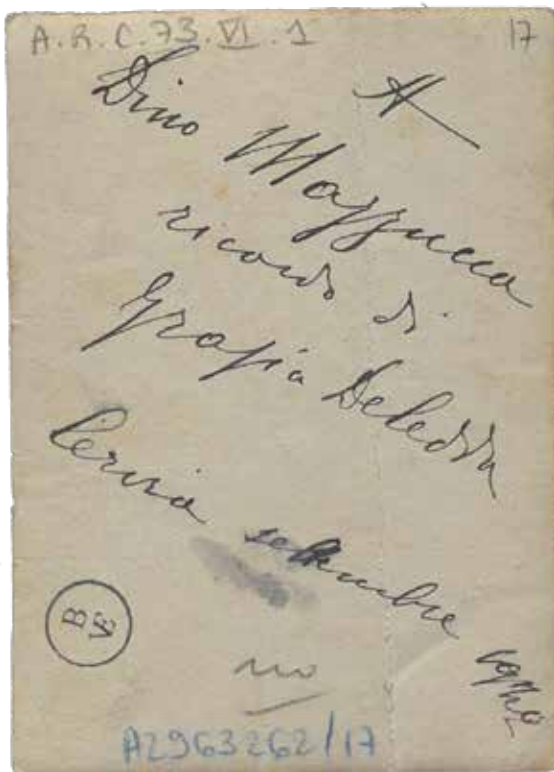 A.R.C.73.VI.1 17
A
Dino Mazzucca
ricordo di
Grazia Deledda
Cervia settembre
B
VE
no
A2963262/17